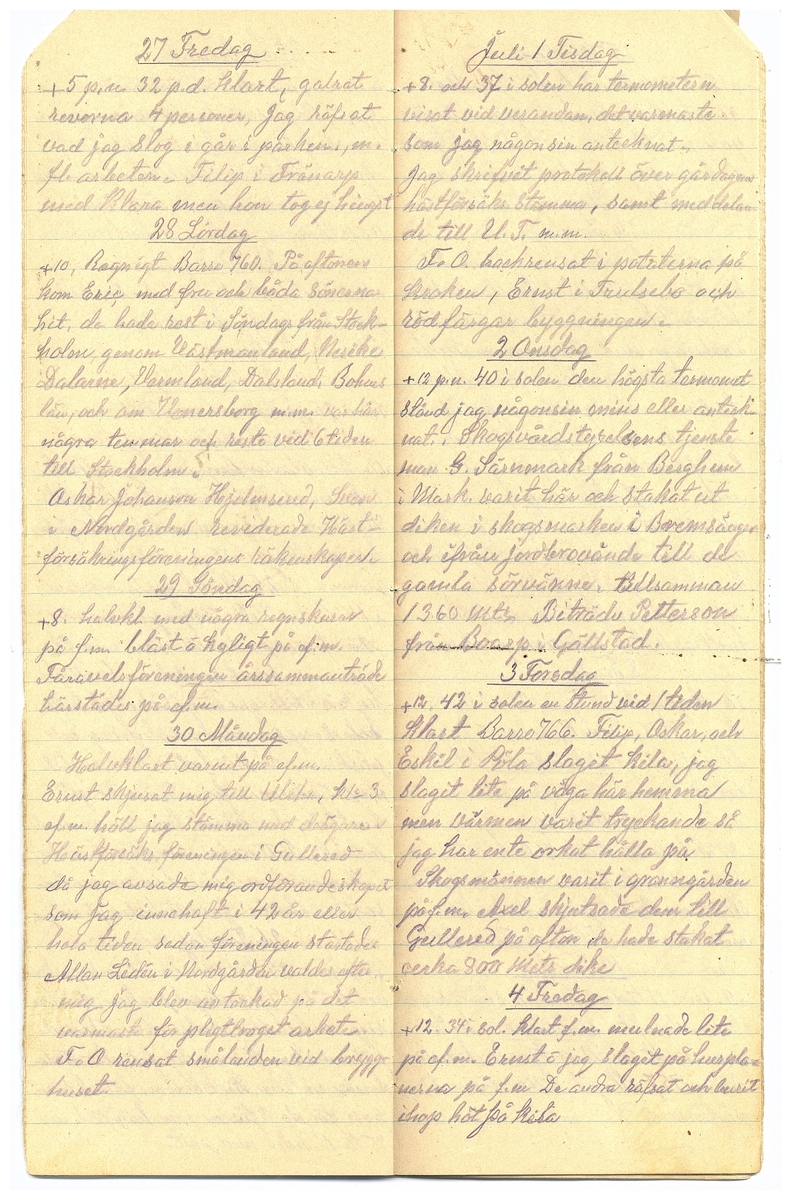 27 Fredag
+5 p.n. 32 p.d. klart, galrat
revorna 4 personer, Jag räfsat
vad jag slog i går i parken, m.
fl. arbeten. Filip i Trånarp
med Klara men hon tog ej hingst
28 Lördag
+10, Regnigt Barro 760. På aftonen
kom Eric med fru och båda sönerna
hit, de hade rest i Söndags från Stock-
holm genom Västmanland, Nerike
Dalarne, Vermland, Dalsland, Bohus
län, och om Venersborg m.m. var här
några timmar och reste vid 6 tiden
till Stockholm.
Oskar Johanson Hjelmsered, Sven
i Nordgården reviderade Häst-
försäkringsföreningens räkenskaper.
29 Söndag
+8. halvkl. med några regnskurar
på f.m. blåst å kyligt på ef.m.
Fåravelsföreningen årssammanträde
härstädes på ef.m.
30 Måndag
Halvklart varmt på ef.m.
Ernst skjusat mig till kl. 3
ef.m. höll jag stämma med delägare
Hästförsäk. föreningen i Gullered
då jag avsade mig ordförandeskapet
som jag innehaft i 42 år eller
hela tiden sedan föreningen startades
Allan Lidén i Nordgården valdes efter
mig, jag blev avtackad på det
varmaste för pligttroget arbete.
F. O rensat smålanden vid brygg-
huset.
Juli 1 Tisdag
+8. och 37 i solen har termometern
visat vid verandan, det varmaste
som jag någonsin antecknat.
Jag skrifvit protokoll över gårdagens
hästförsäk. stämma, samt meddelan-
de till U.T. m.m.
F. O. hackrensat i potäterna på
kroken, Ernst i Trulsebo och
rödfärgar byggningen.
2 Onsdag
+12 p.n. 40 i solen den högsta termomet
stånd jag någonsin mins eller anteck-
nat. Skogsvårdstyrelsens tjenste
man G. Särnmark från Berghem
i Mark varit här och stakat ut
diken i skogsmarken i
och ifrån till de
gamla Tillsamman
1360 mtr. Biträde Petterson
från Boarp i Gällstad.
3 Torsdag
+12. 42 i solen en stund vid 1 tiden
klart Barro 766. Filip, Oskar, och
Eskil i Röla slaget kilar, jag
slaget lite på väga här hemma
men värmen varit tryckande så
jag har ente orkat hålla på.
Skogsmännen varit i granngården
på f.m. Axel skjutsade dem till
Gullered på afton, de hade stakat
cerka 800 Metr dike
4 Fredag
+12. 34 i sol. klart f.m. mulnade lite
på ef.m. Ernst å jag slaget på husspla-
nerna på f.m De andra räfsat och burit
ihop höt på kila